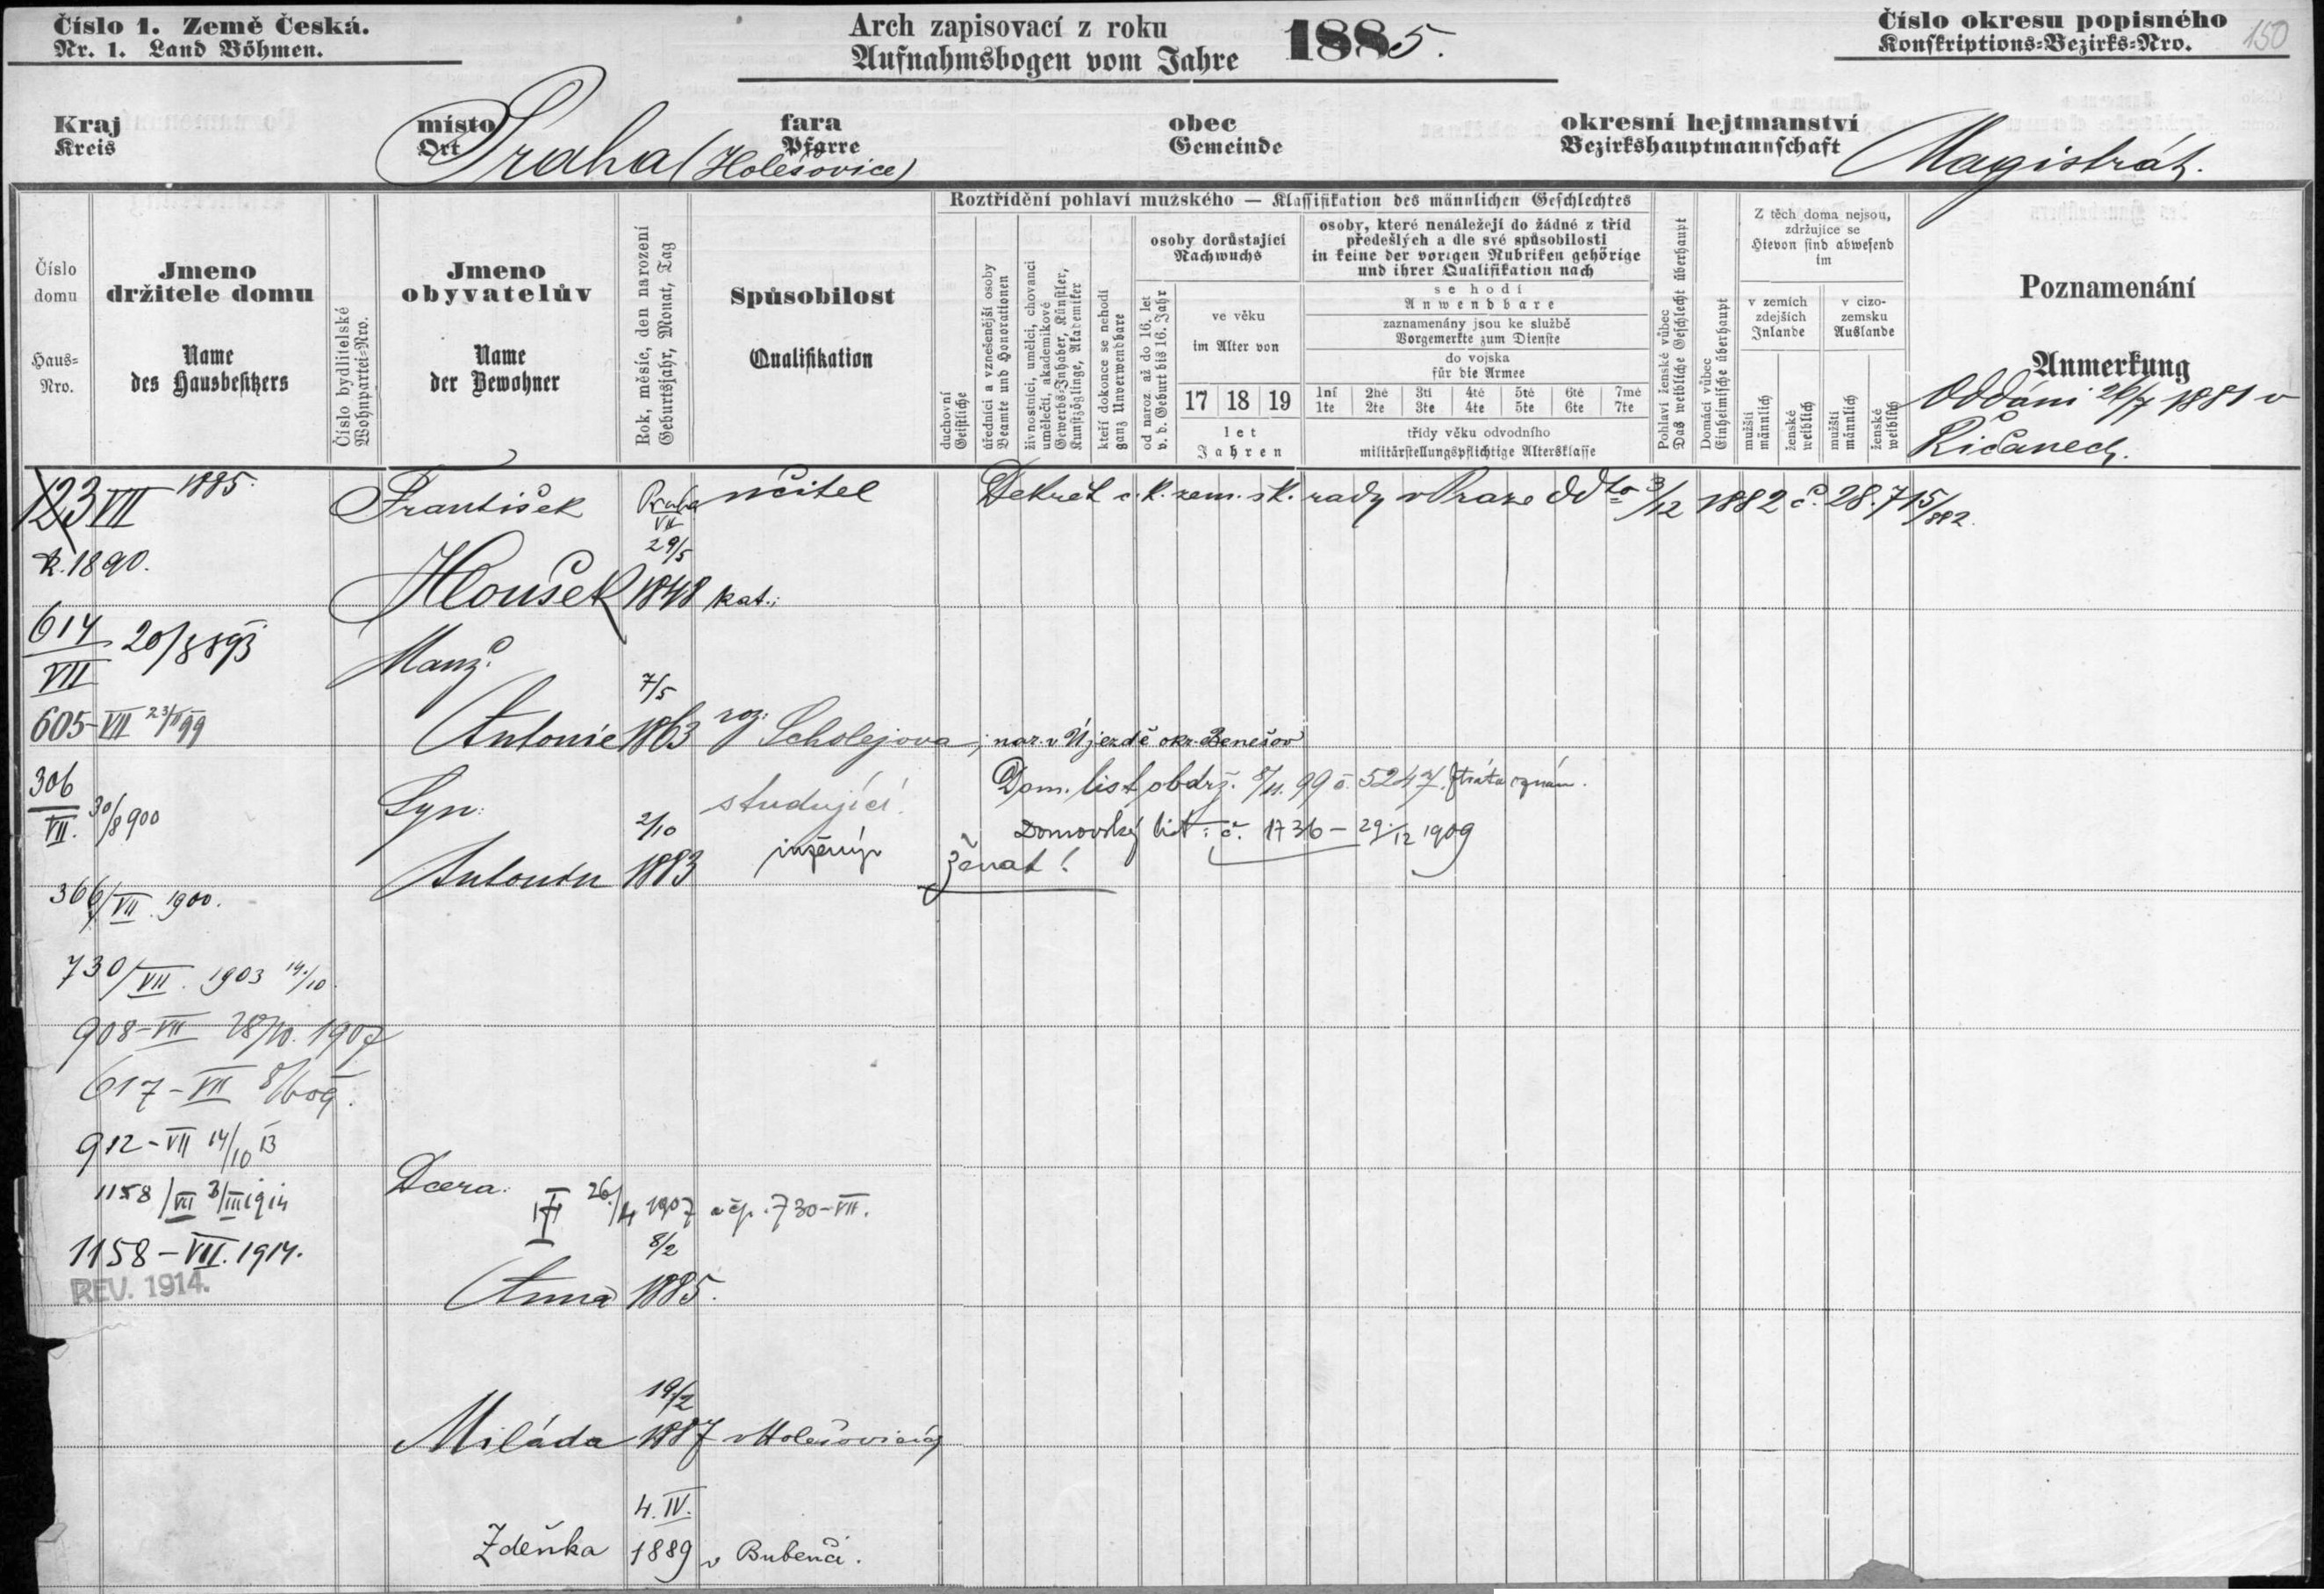 Číslo 1. Země Česká.
Nr. 1. Land Böhmen.
Arch zapisovací z roku 1885.
Aufnahmsbogen vom Jahre
Číslo okresu popisného 150
Konskriptions-Bezirks-Nro.
Kraj místo Praha (Holešovice) fara obec okresní hejtmanství Magistrát.
Kreis Ort Pfarre Gemeinde Bezirkshauptmannschaft
Číslo domu
Haus-Nro.
Jmeno držitele domu
Name des Hausbesitzers
Číslo bydlitelské
Wohnpartei-Nro.
Jmeno obyvatelův
Name der Bewohner
Rok, měsíc, den narození
Geburtsjahr, Monat, Tag
Spůsobilost
Qualifikation
Roztřídění pohlaví mužského — Klassifikation des männlichen Geschlechtes
duchovní
Geistliche
úředníci a vznešenější osoby
Beamte und Honorationen
živnostníci, umělci, chovanci
umělečtí, akademikové
Gewerbs-Inhaber, Künstler,
Kunstzöglinge, Akademiker
kteří dokonce se nehodí
ganz Unverwendbare
osoby dorůstající
Nachwuchs
od naroz. až do 16. let
v. d. Geburt bis 16. Jahr
ve věku
im Alter von
17 18 19
let
Jahren
osoby, které nenáležejí do žádné z tříd
předešlých a dle své spůsobilosti
in keine der vorigen Rubriken gehörige
und ihrer Qualifikation nach
se hodí
Anwendbare
zaznamenány jsou ke službě
Vorgemerkte zum Dienste
do vojska
für die Armee
1ní 2hé 3tí 4té 5té 6té 7mé
1te 2te 3te 4te 5te 6te 7te
třídy věku odvodního
militärstellungspflichtige Altersklasse
Pohlaví ženské vůbec
Das weibliche Geschlecht überhaupt
Domácí vůbec
Einheimische überhaupt
Z těch doma nejsou,
zdržujíce se
Hievon sind abwesend
im
v zemích
zdejších
Inlande
v cizo-
zemsku
Auslande
mužští
männlich
ženské
weiblich
mužští
männlich
ženské
weiblich
Poznamenání
Anmerkung
Oddáni 26/7 1881 v
Říčanech.
123 VII 1885.
František Praha VII učitel Dekret c. k. zem. šk. rady v Praze ddto 3/12 1882 č. 28.715/882.
R. 1890.
29/5
Hloušek 1848 kat.;
614/VII 20/8 893
Manž.
7/5
605-VII 23/II 99
Antonie 1863 roz. Scholejova, nar. v Újezdě okr. Benešov
306/VII. 30/8 900
Syn: studující. Dom. list obdrž. 8/11. 99 č. 5247. ztráta oznám.
2/10 inženýr Domovský list: č. 1736 - 29./12 1909
Antonín 1883 ženat!
366/VII. 1900.
730/VII. 1903 14./10.
908-VII 28/10. 1907
617-VII 8/6 09.
912-VII 14/10 13
Dcera:
1158/VII 3/III 1914
26./4 1907 v čp. 730-VII.
1158-VII. 1914.
8/2
REV. 1914.
Anna 1885.
19/2
Miláda 1887 v Holešovicích
4. IV.
Zdeňka 1889 v Bubenči.